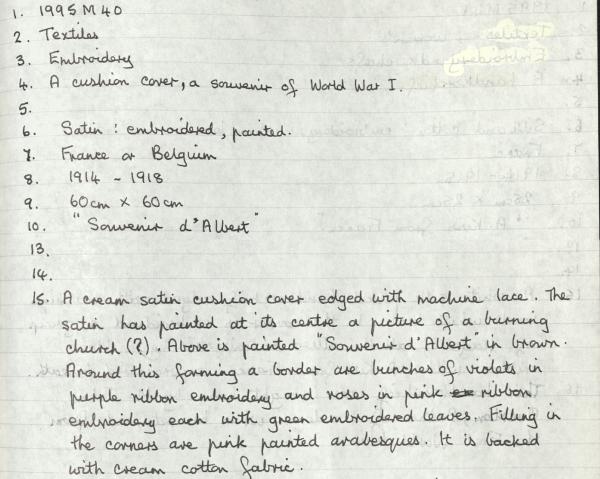 1. 1995 M 40
2. Textiles
3. Embroidery
4. A cushion cover, a souvenir of World War I.
5.
6. Satin : embroidered, painted.
7. France or Belgium
8. 1914 - 1918
9. 60cm x 60cm
10. "Souvenir d'Albert"
13.
14.
15. A cream satin cushion cover edged with machine lace. The
satin has painted at its centre a picture of a burning
church (?). Above is painted "Souvenir d'Albert" in brown.
Around this forming a border are bunches of violets in
purple ribbon embroidery and roses in pink ribbon
embroidery each with green embroidered leaves. Filling in
the corners are pink painted arabesques. It is backed
with cream cotton fabric.